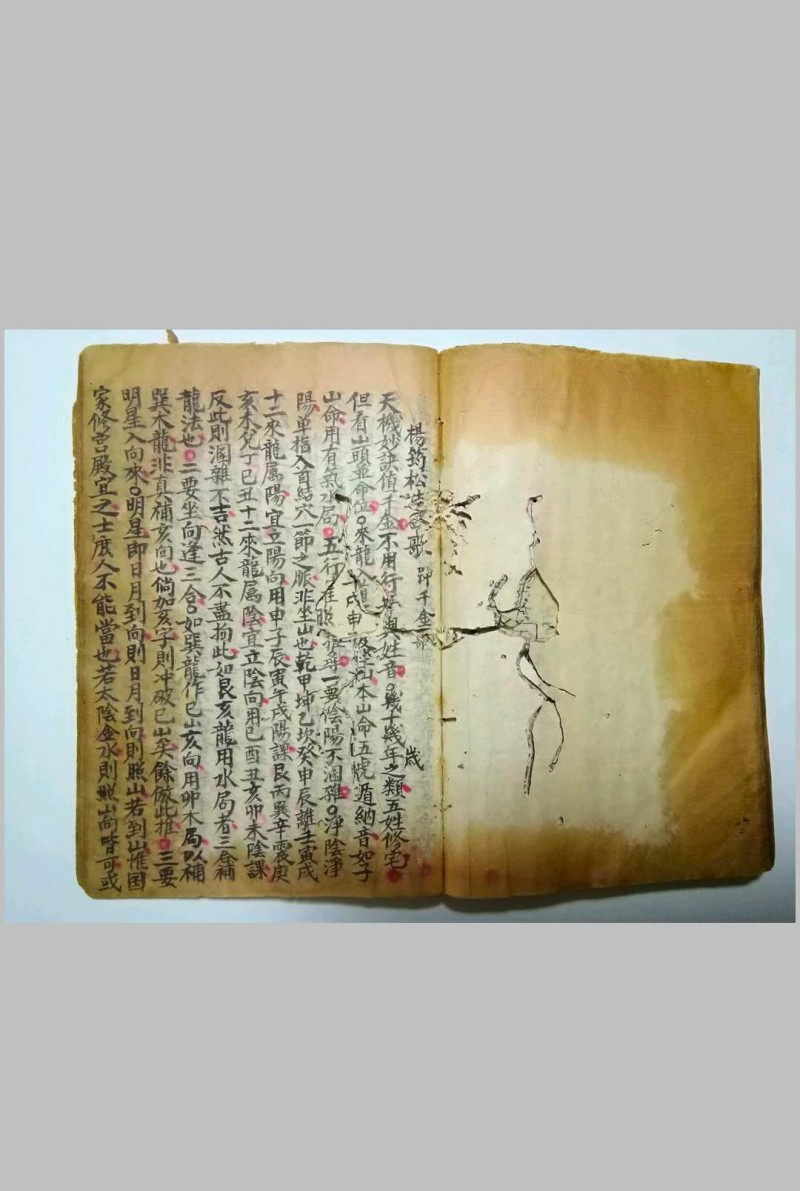 楊筠松造命歌 即千金歌
天機妙訣值千金不用行年與姓音○幾十幾年之類五姓修宅
歲
但看山頭並命位○來龍坐山本山命五虎遁納音如子
山命用有氣水局○五行 一要陰陽不溷雜○淨陰淨
陽单指入首結穴一節之脈非坐山也乾甲坤乙坎癸申辰離壬寅戌
十二來龍属陽宜立陽向用申子辰寅午戌陽課艮丙巽辛震庚
亥未兌丁巳丑十二來龍属陰宜立陰向用巳酉丑亥卯未陰課
反此則溷雜不吉然古人不盡拘此如艮亥龍用水局者三合補
龍法也○二要坐向逢三合○如巽龍作巳山亥向用卯木局以補
巽木龍非真補亥向也倘加亥字則冲破巳山矣餘倣此推○三要
明星入向來○明星即日月到向則日月到向則照山若到山惟国
家修宫殿宜之士庶人不能當也若太陰金水則照山向皆可或